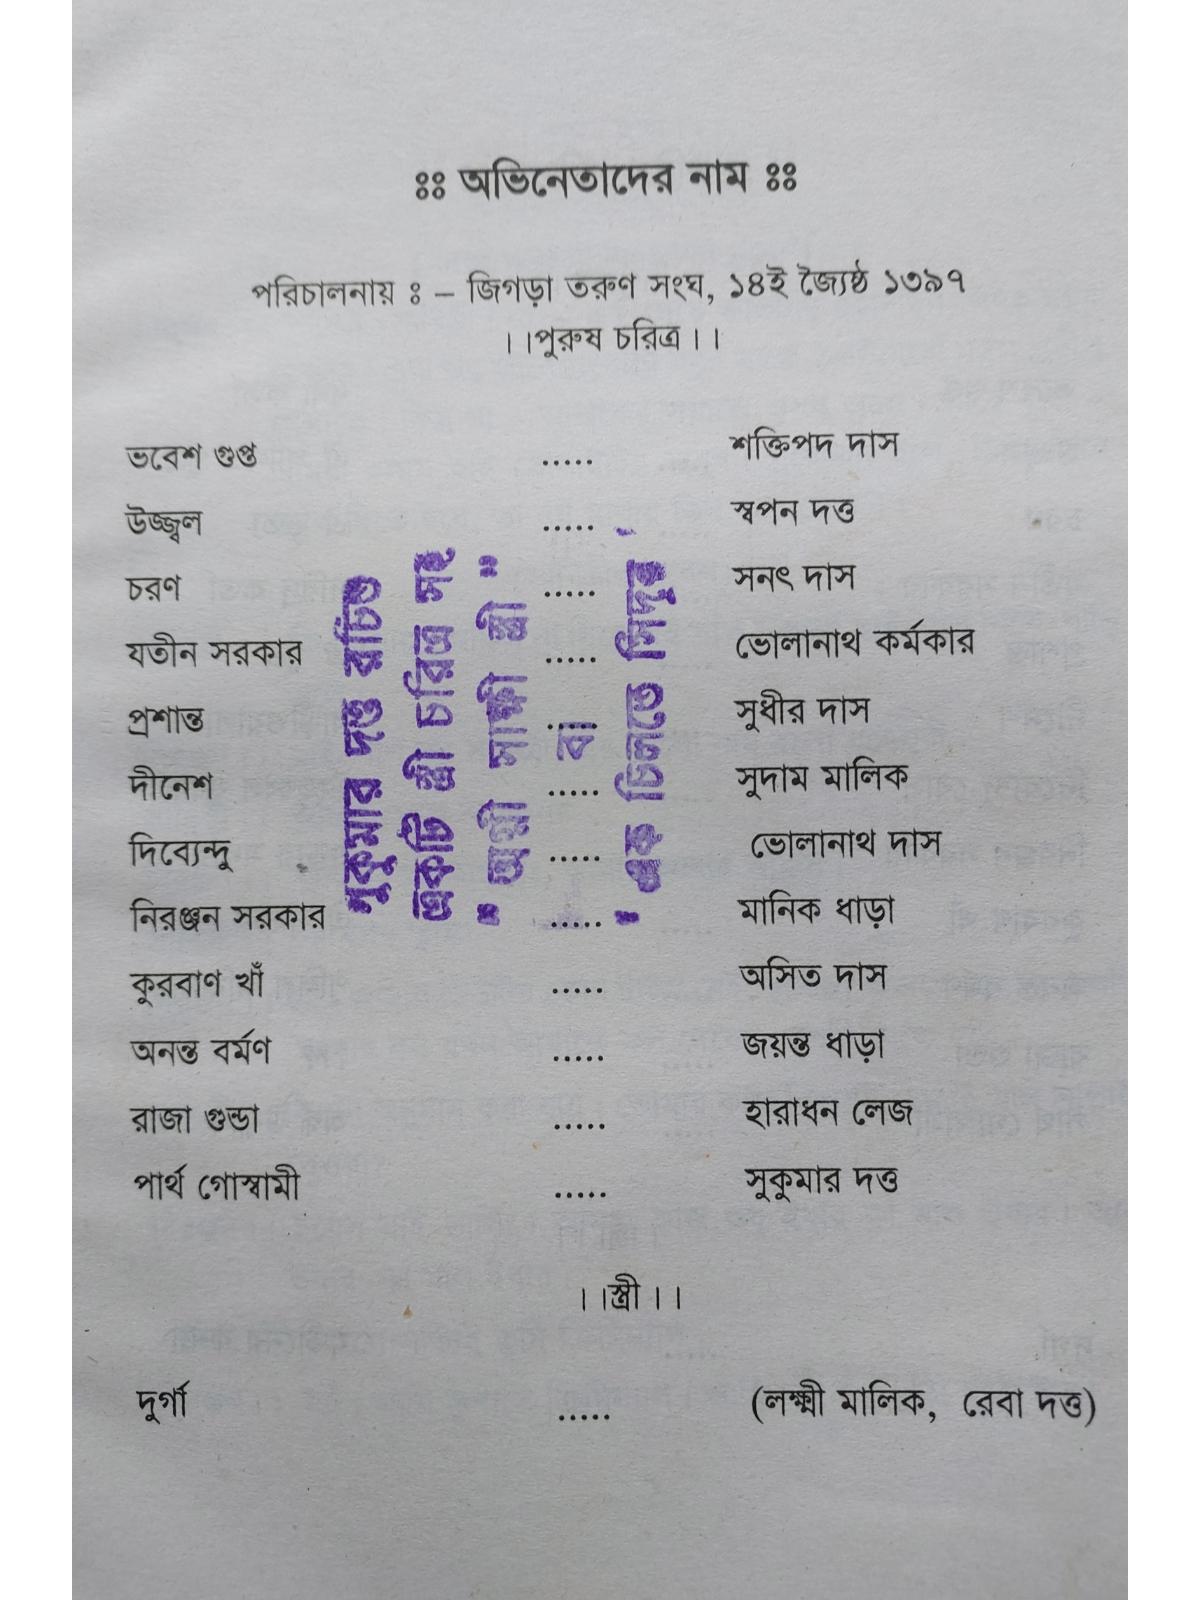 ঃঃ অভিনেতাদের নাম ঃঃ
পরিচালনায় ঃ – জিগড়া তরুণ সংঘ, ১৪ই জ্যৈষ্ঠ ১৩৯৭
।।পুরুষ চরিত্র।।
ভবেশ গুপ্ত ..... শক্তিপদ দাস
উজ্জ্বল ..... স্বপন দত্ত
চরণ ..... সনৎ দাস
যতীন সরকার ..... ভোলানাথ কর্মকার
প্রশান্ত ..... সুধীর দাস
দীনেশ ..... সুদাম মালিক
দিব্যেন্দু ..... ভোলানাথ দাস
নিরঞ্জন সরকার ..... মানিক ধাড়া
কুরবাণ খাঁ ..... অসিত দাস
অনন্ত বর্মণ ..... জয়ন্ত ধাড়া
রাজা গুন্ডা ..... হারাধন লেজ
পার্থ গোস্বামী ..... সুকুমার দত্ত
।।স্ত্রী।।
দুর্গা ..... (লক্ষ্মী মালিক, রেবা দত্ত)
সুকুমার দত্ত রচিত
একটি স্ত্রী চরিত্র সহ
" অগ্নী সাক্ষী স্ত্রী "
বা
" এক চিলতে সিঁদুর "